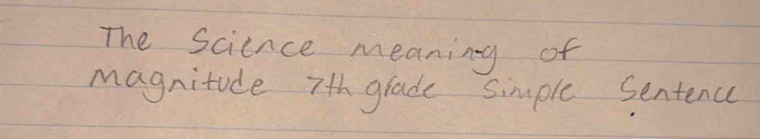 The Science meaning of
magnitude 7th grade Simple Sentence